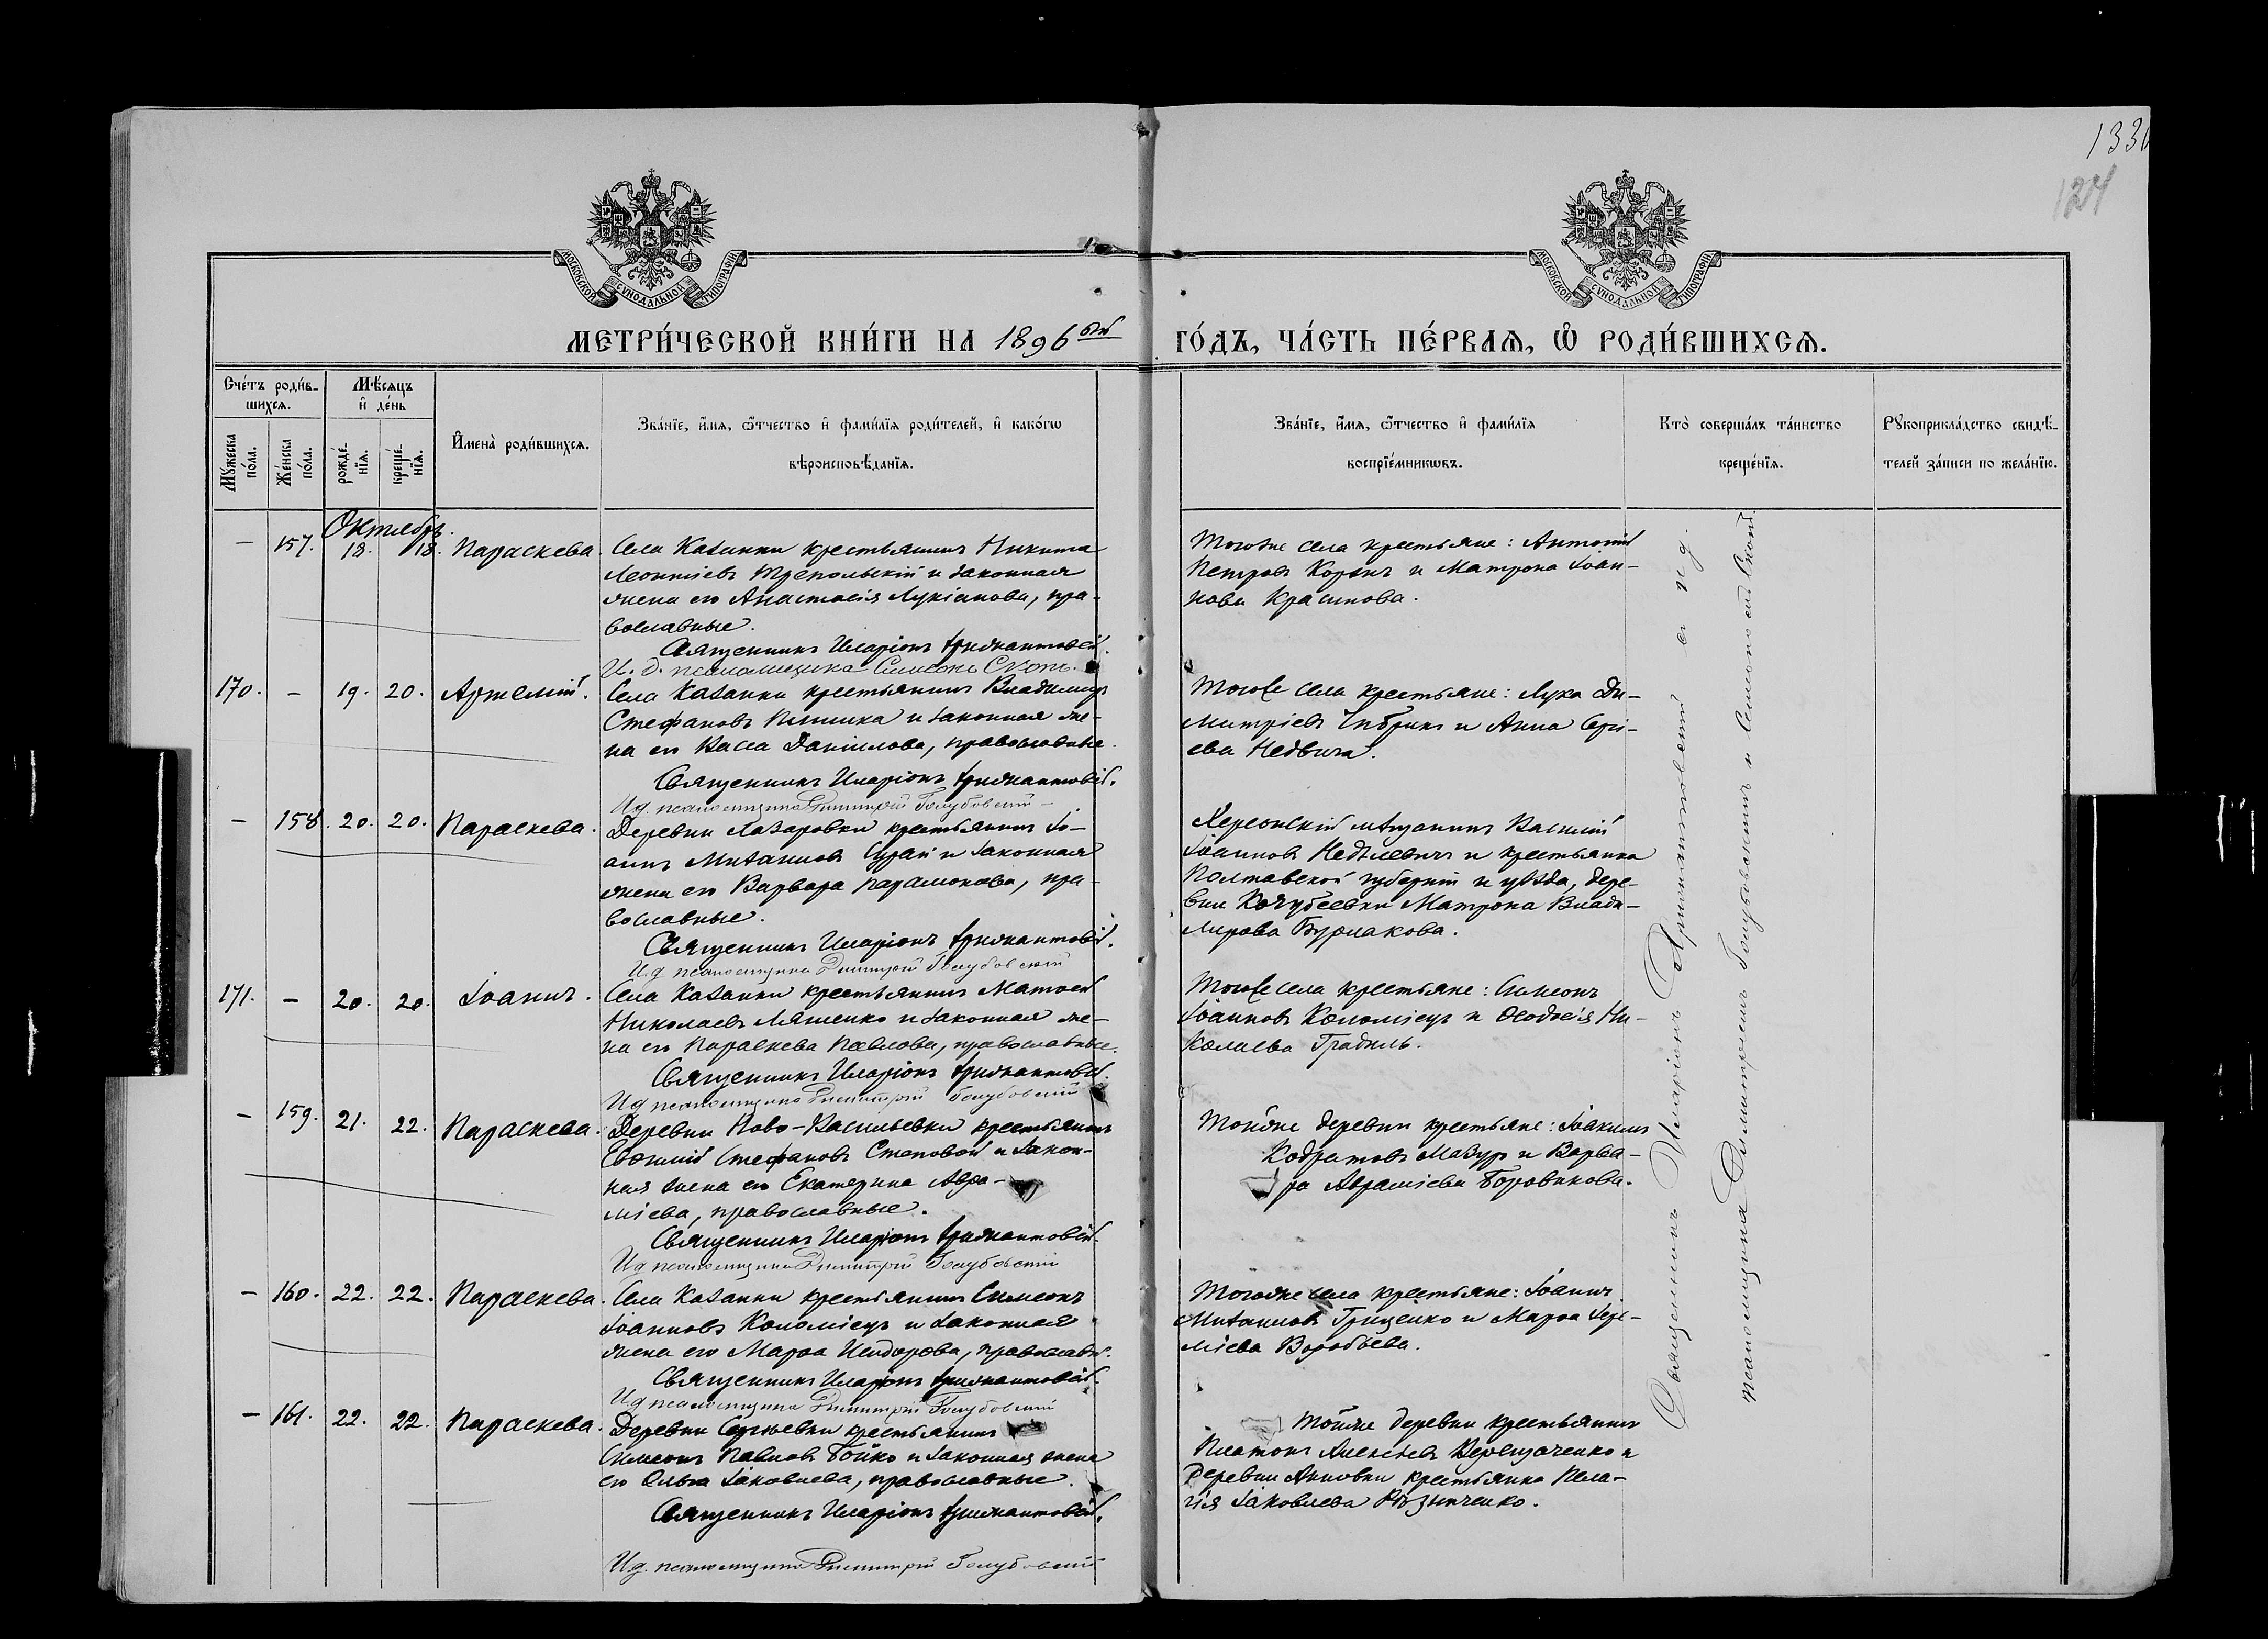 133
124
МОСКОВСКОЙ СѴНОДАЛЬНОЙ ТИПОГРАФІИ
МОСКОВСКОЙ СѴНОДАЛЬНОЙ ТИПОГРАФІИ
МЕТРИ́ЧЕСКОЙ КНИ́ГИ НА 1896 ой ГО́ДЪ, ЧА́СТЬ ПЕ́РВАѦ, Ѽ РОДИ́ВШИХСѦ.
Сче́тъ роди́в-
шихсѧ.
Мѣ́сѧцъ
и҆ де́нь
Мꙋ́жеска
по́ла.
Же́нска
по́ла.
рожде́-
нїѧ.
креще́-
нїѧ.
И҆мена̀ роди́вшихсѧ.
Зва́нїе, и҆́мѧ, ѻ҆́тчество и҆ фами́лїѧ роди́телей, и҆ како́гѡ
вѣроисповѣ́данїѧ.
Зва́нїе, и҆́мѧ, ѻ҆́тчество и҆ фами́лїѧ
воспрїе́мникѡвъ.
Кто̀ соверша́лъ та́инство
креще́нїѧ.
Рꙋкоприкла́дство свидѣ́-
телей за́писи по жела́нїю.
Октябрь.
— 157. 18. 18. Параскева.
Села Казанки крестьянинъ Никита
Леонтіевъ Трепольскій и законная
жена его Анастасія Лукіанова, пра-
вославные.
Священникъ Иларіонъ
И. д. псаломщика Симеонъ Скопъ.
Тогоже села крестьяне: Антоній
Петровъ и Матрона Іоан-
нова
170. — 19. 20. Артемій.
Села Казанки крестьянинъ Владимиръ
Стефановъ и законная же-
на его Васса Даніилова, православные.
Священникъ Иларіонъ
И д. псаломщика Димитрій Голубовскій
Тогоже села крестьяне: Лука Ди-
митріевъ и Анна
— 158. 20. 20. Параскева.
Деревни Лазаровки крестьянинъ Іо-
аннъ Михаиловъ и законная
жена его Варвара Парамонова, пра-
вославные.
Священникъ Иларіонъ
И д псаломщика Димитрій Голубовскій
Херсонскій мѣщанинъ Василій
Іоанновъ Недѣлевичъ и крестьянка
Полтавской губерніи и уѣзда, дере-
вни Кочубеевки Матрона Влади-
мирова Бурлакова.
171. — 20. 20. Іоаннъ.
Села Казанки крестьянинъ Матѳей
Николаевъ Ляшенко и законная же-
на его Параскева Павлова, православные.
Священникъ Иларіонъ
И д псаломщика Димитрій Голубовскій
Тогоже села крестьяне: Симеонъ
Іоанновъ Коломіецъ и Ѳеодосія Ни-
колаева Градиль.
— 159. 21. 22. Параскева.
Деревни Ново-Васильевки крестьянинъ
Евѳимій Стефановъ Степовой и закон-
ная жена его Екатерина Авра-
міева, православные.
Священникъ Иларіонъ
И д псаломщика Димитрій Голубовскій
Тойже деревни крестьяне: Іоакимъ
Кодратовъ Мазуръ и Варва-
ра Авраміева Боровикова.
— 160. 22. 22. Параскева.
Села Казанки крестьянинъ Симеонъ
Іоанновъ Коломіецъ и законная
жена его Марѳа Исидорова, православн.
Священникъ Иларіонъ
И д псаломщика Димитрій Голубовскій
Тогоже села крестьяне: Іоаннъ
Михаиловъ Гриценко и Марѳа Іере-
міева Воробьева.
— 161. 22. 22. Параскева.
Деревни Сергіевки крестьянинъ
Симеонъ Павловъ Бойко и законная жена
его Ольга Іаковлева, православные.
Священникъ Иларіонъ
И д. псаломщика Димитрій Голубовскій
Тойже деревни крестьянинъ
Платонъ Алексѣевъ и
деревни Анновки крестьянка Пела-
гія Іаковлева
Священникъ Иларіонъ и и д.
псаломщика Димитрій Голубовскій и Симеонъ Скопъ.